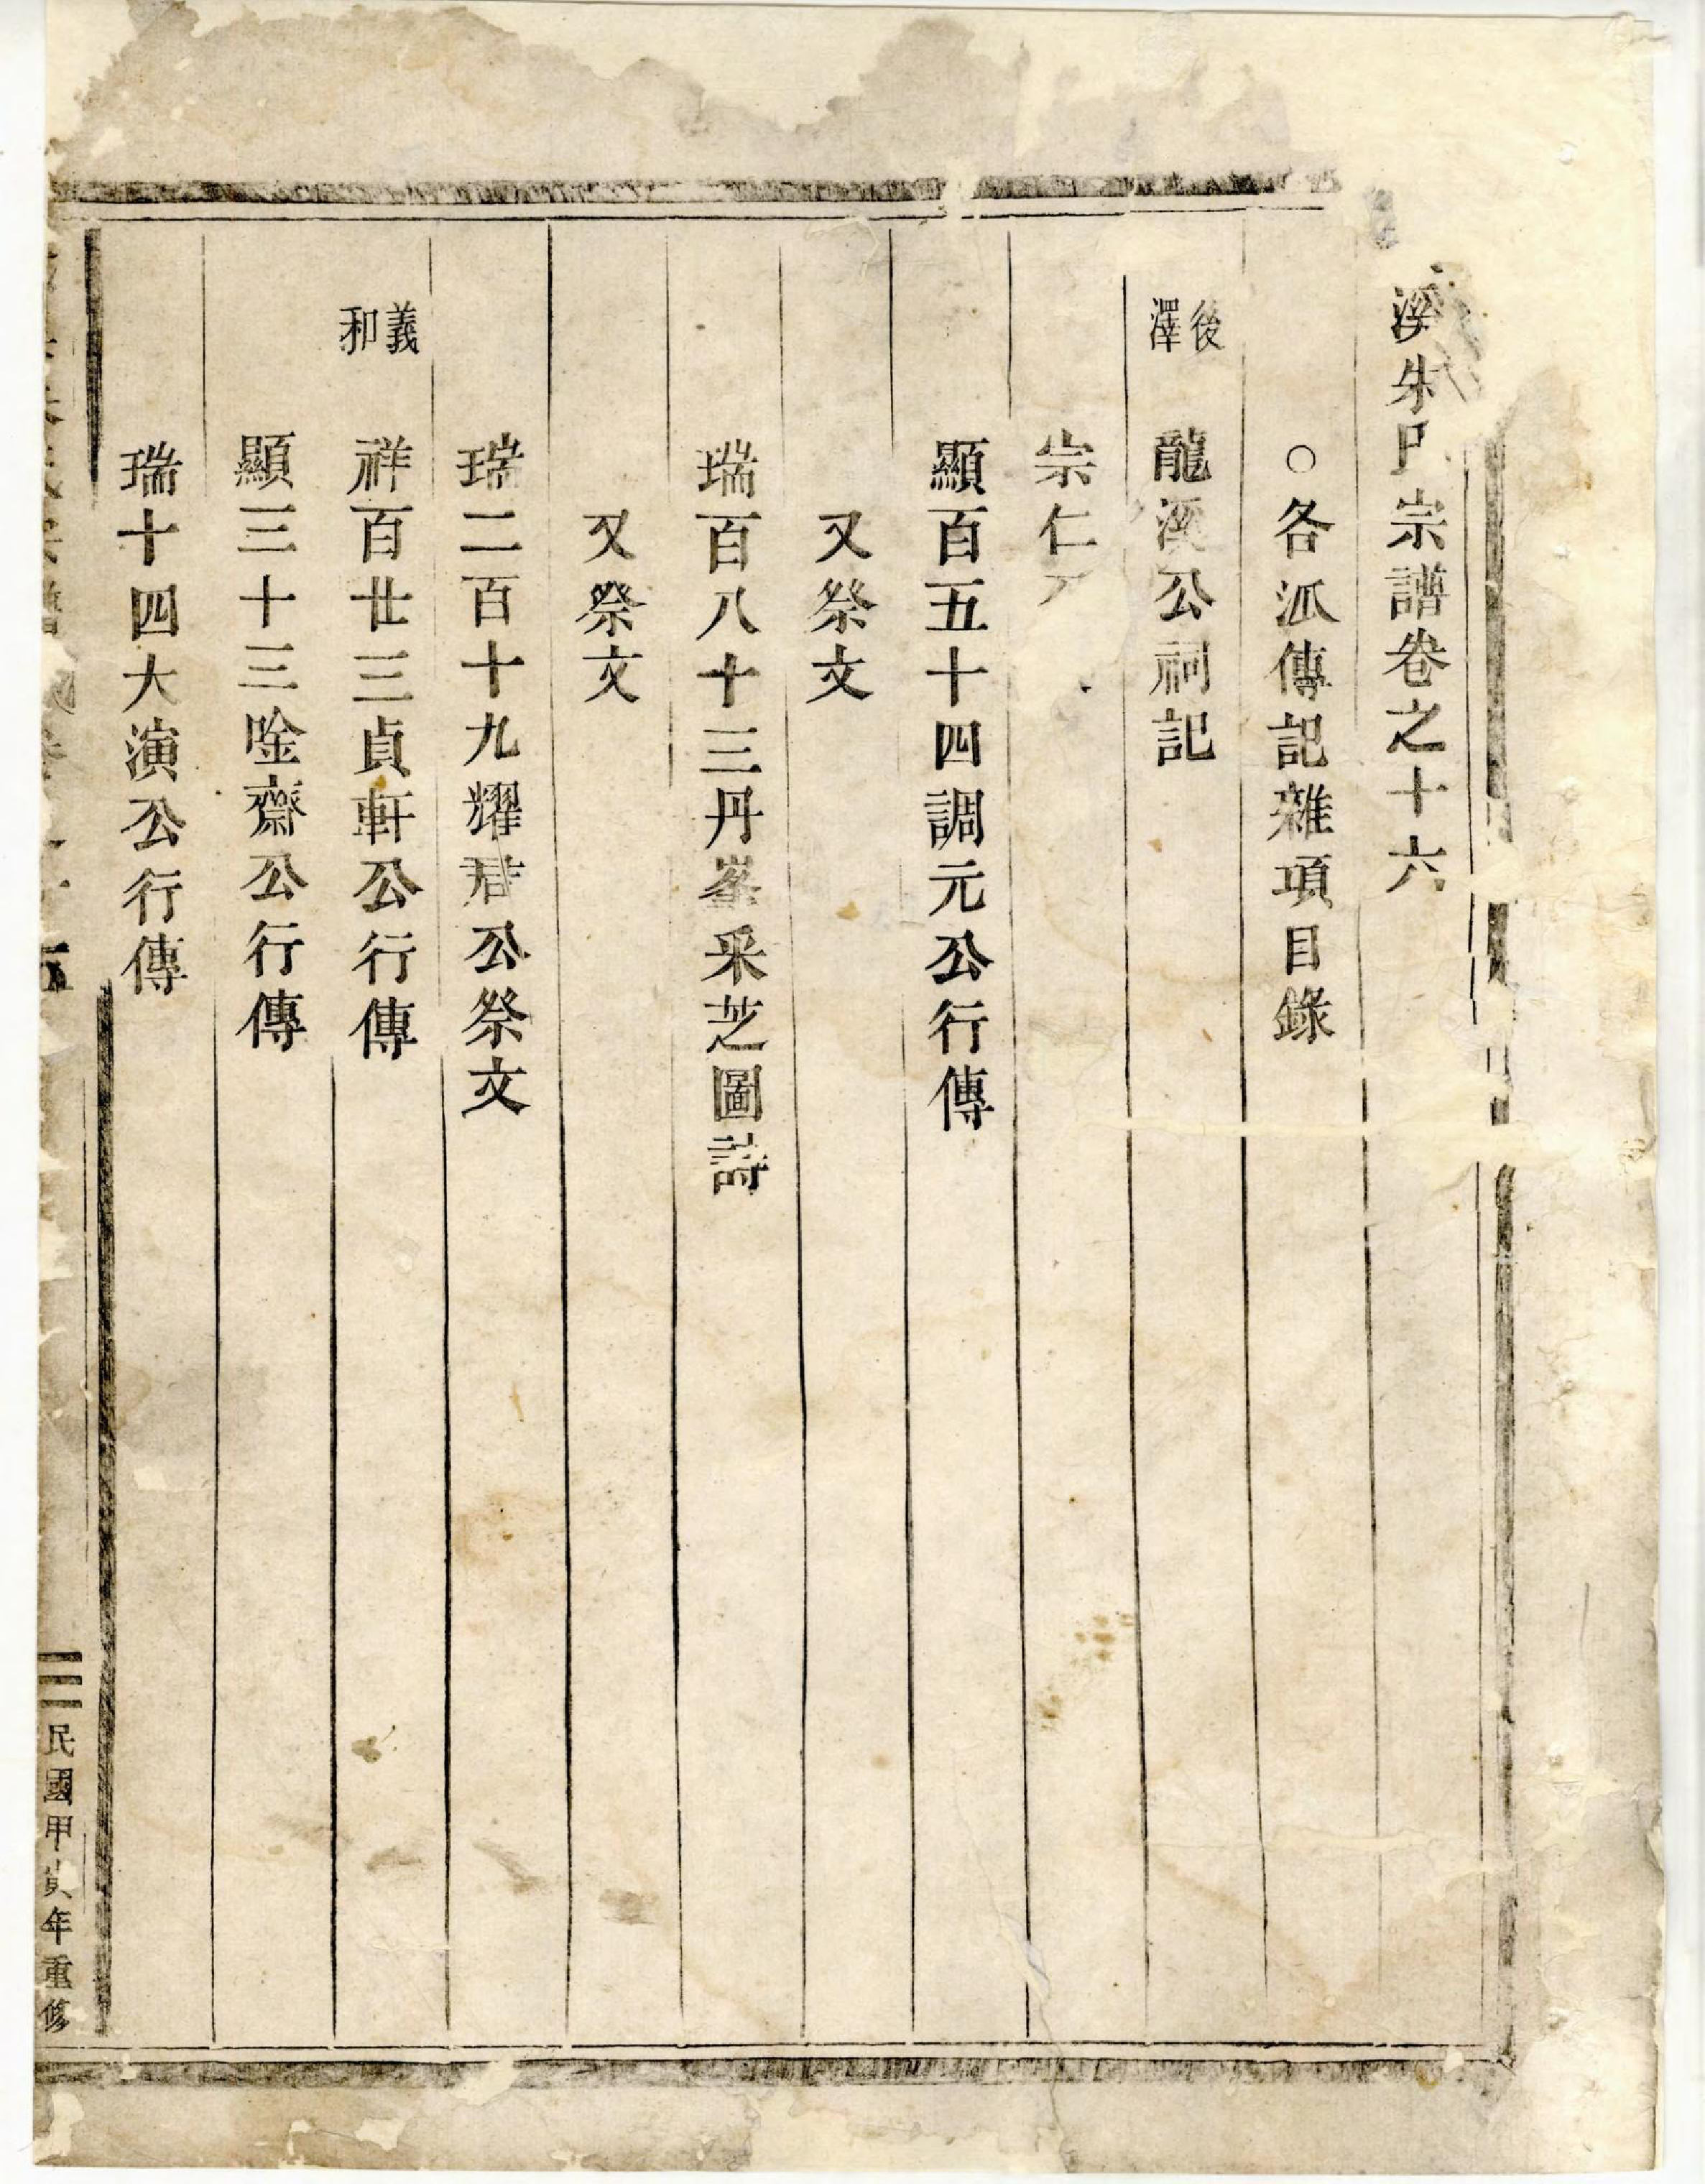 溪朱氏宗譜卷之十六
○各派傳記雜項目錄
後澤
龍溪公祠記
崇仁
顯百五十四調元公行傳
又祭文
瑞百八十三丹峯采芝圖詩
又祭文
瑞二百十九耀君公祭文
義和
祥百廿三貞軒公行傳
顯三十三唫齋公行傳
瑞十四大演公行傳
民國甲寅年重修